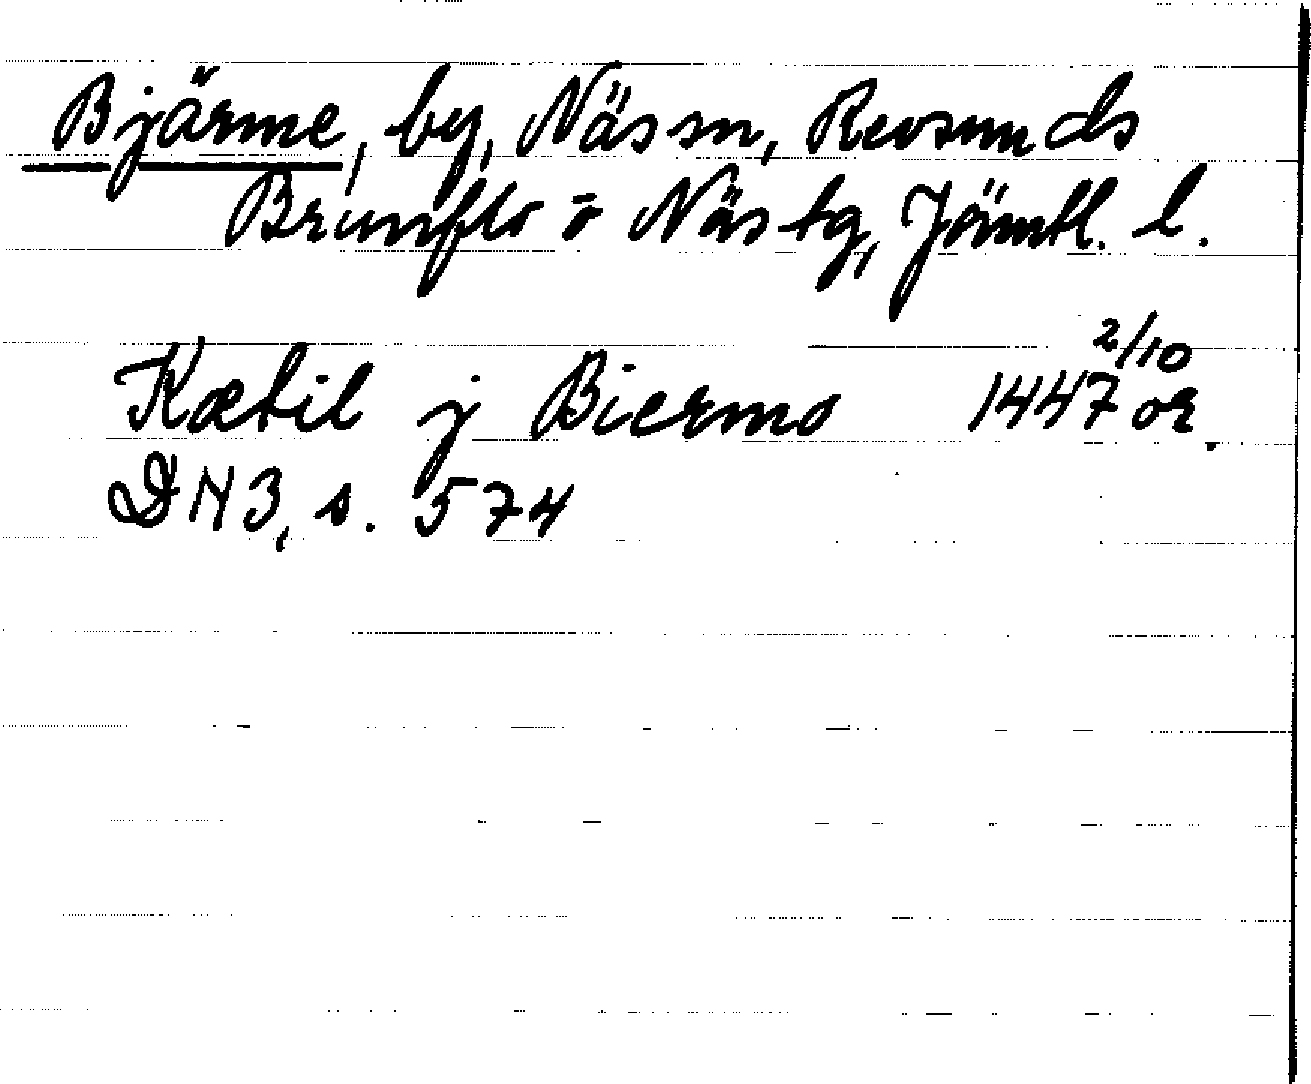 Bjärme, by, Näs sn, Revsunds
Brunflo o Näs tg, Jämtl. l.
Kætil j Biermo 1447 2/10 or.
DN 3, s. 574